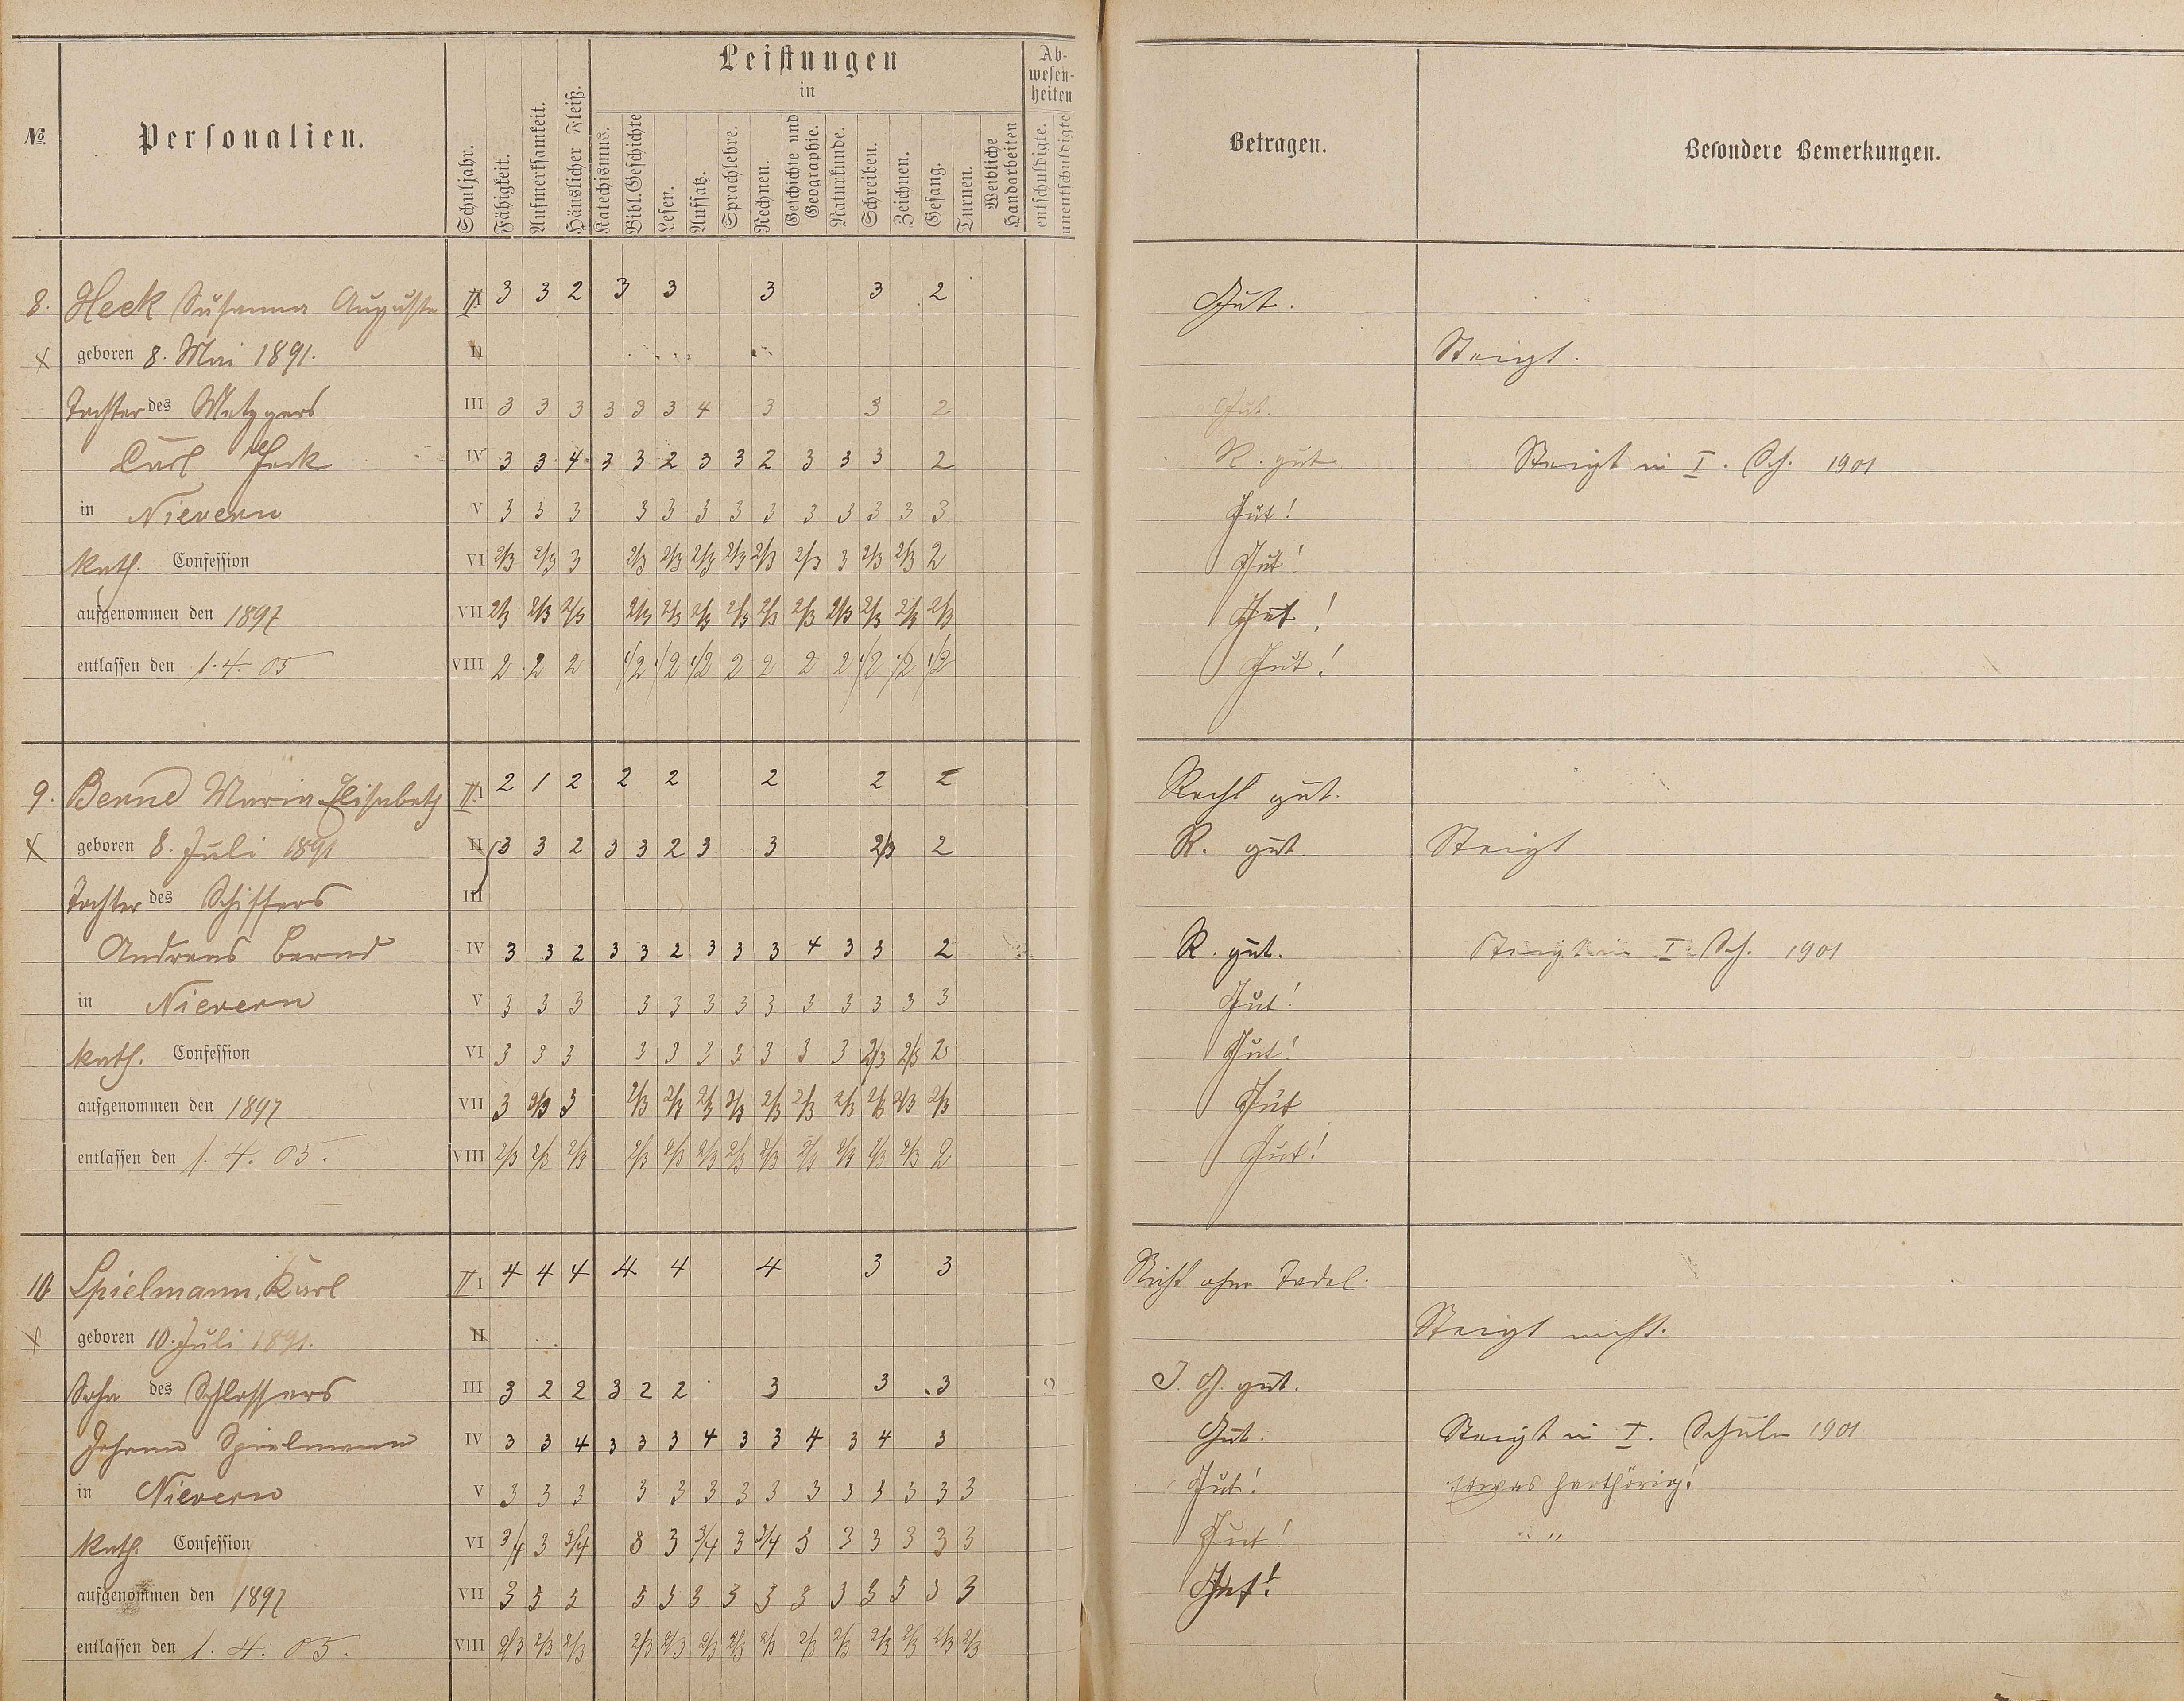 Leistungen
in
Ab-
wesen-
heiten
№
Personalien.
Schuljahr.
Fähigkeit.
Aufmerksamkeit.
Häuslicher Fleiß.
Katechismus.
Bibl. Geschichte
Lesen.
Aufsatz.
Sprachlehre.
Rechnen.
Geschichte und
Geographie.
Naturkunde.
Schreiben.
Zeichnen.
Gesang.
Turnen.
Weibliche
Handarbeiten
entschuldigte.
unentschuldigte
Betragen.
Besondere Bemerkungen.
8. Heck Susanna Auguste I 3 3 2 3 3 3 3 2 Gut.
x geboren 8. Mai 1891. II Steigt.
Tochter des Metzgers III 3 3 3 3 3 3 4 3 3 2 Gut.
Carl Heck IV 3 3 4 3 3 2 3 3 2 3 3 3 2 R. gut Steigt in I. Sch. 1901
in Nievern V 3 3 3 3 3 3 3 3 3 3 3 3 3 Gut!
Kath. Confession VI 2/3 2/3 3 2/3 2/3 2/3 2/3 2/3 2/3 3 2/3 2/3 2 Gut!
aufgenommen den 1897 VII 2/3 2/3 2/3 2/3 2/3 2/3 2/3 2/3 2/3 2/3 2/3 2/3 2/3 Gut!
entlassen den 1.4.05 VIII 2 2 2 1/2 1/2 1/2 2 2 2 2 1/2 1/2 1/2 Gut!
9. Bernd Maria Elisabeth I 2 1 2 2 2 2 2 2 Recht gut.
x geboren 8. Juli 1891 II 3 3 2 3 3 2 3 3 2/3 2 R. gut. Steigt
Tochter des Schiffers III
Andreas Bernd IV 3 3 2 3 3 2 3 3 3 4 3 3 2 R. gut. Steigt in I. Sch. 1901
in Nievern V 3 3 3 3 3 3 3 3 3 3 3 3 3 Gut!
Kath. Confession VI 3 3 3 3 3 3 3 3 3 3 2/3 2/3 2 Gut!
aufgenommen den 1897 VII 3 2/3 3 2/3 2/3 2/3 2/3 2/3 2/3 2/3 2/3 2/3 2/3 Gut
entlassen den 1.4.05. VIII 2/3 2/3 2/3 2/3 2/3 2/3 2/3 2/3 2/3 2/3 2/3 2/3 2 Gut!
10 Spielmann, Karl I 4 4 4 4 4 4 3 3 Nicht ohne Tadel.
x geboren 10. Juli 1891. II Steigt nicht.
Sohn des Schlossers III 3 2 2 3 2 2 3 3 3 gut.
Johann Spielmann IV 3 3 4 3 3 3 4 3 3 4 3 4 3 Gut. Steigt in I. Schule 1901
in Nievern V 3 3 3 3 3 3 3 3 3 3 3 3 3 3 Gut! Etwas harthörig!
Kath. Confession VI 3/4 3 3/4 3 3 3/4 3 3/4 3 3 3 3 3 3 Gut! " "
aufgenommen den 1897 VII 3 3 3 3 3 3 3 3 3 3 3 3 3 3 Gut!
entlassen den 1.4.05. VIII 2/3 2/3 2/3 2/3 2/3 2/3 2/3 2/3 2/3 2/3 2/3 2/3 2/3 2/3